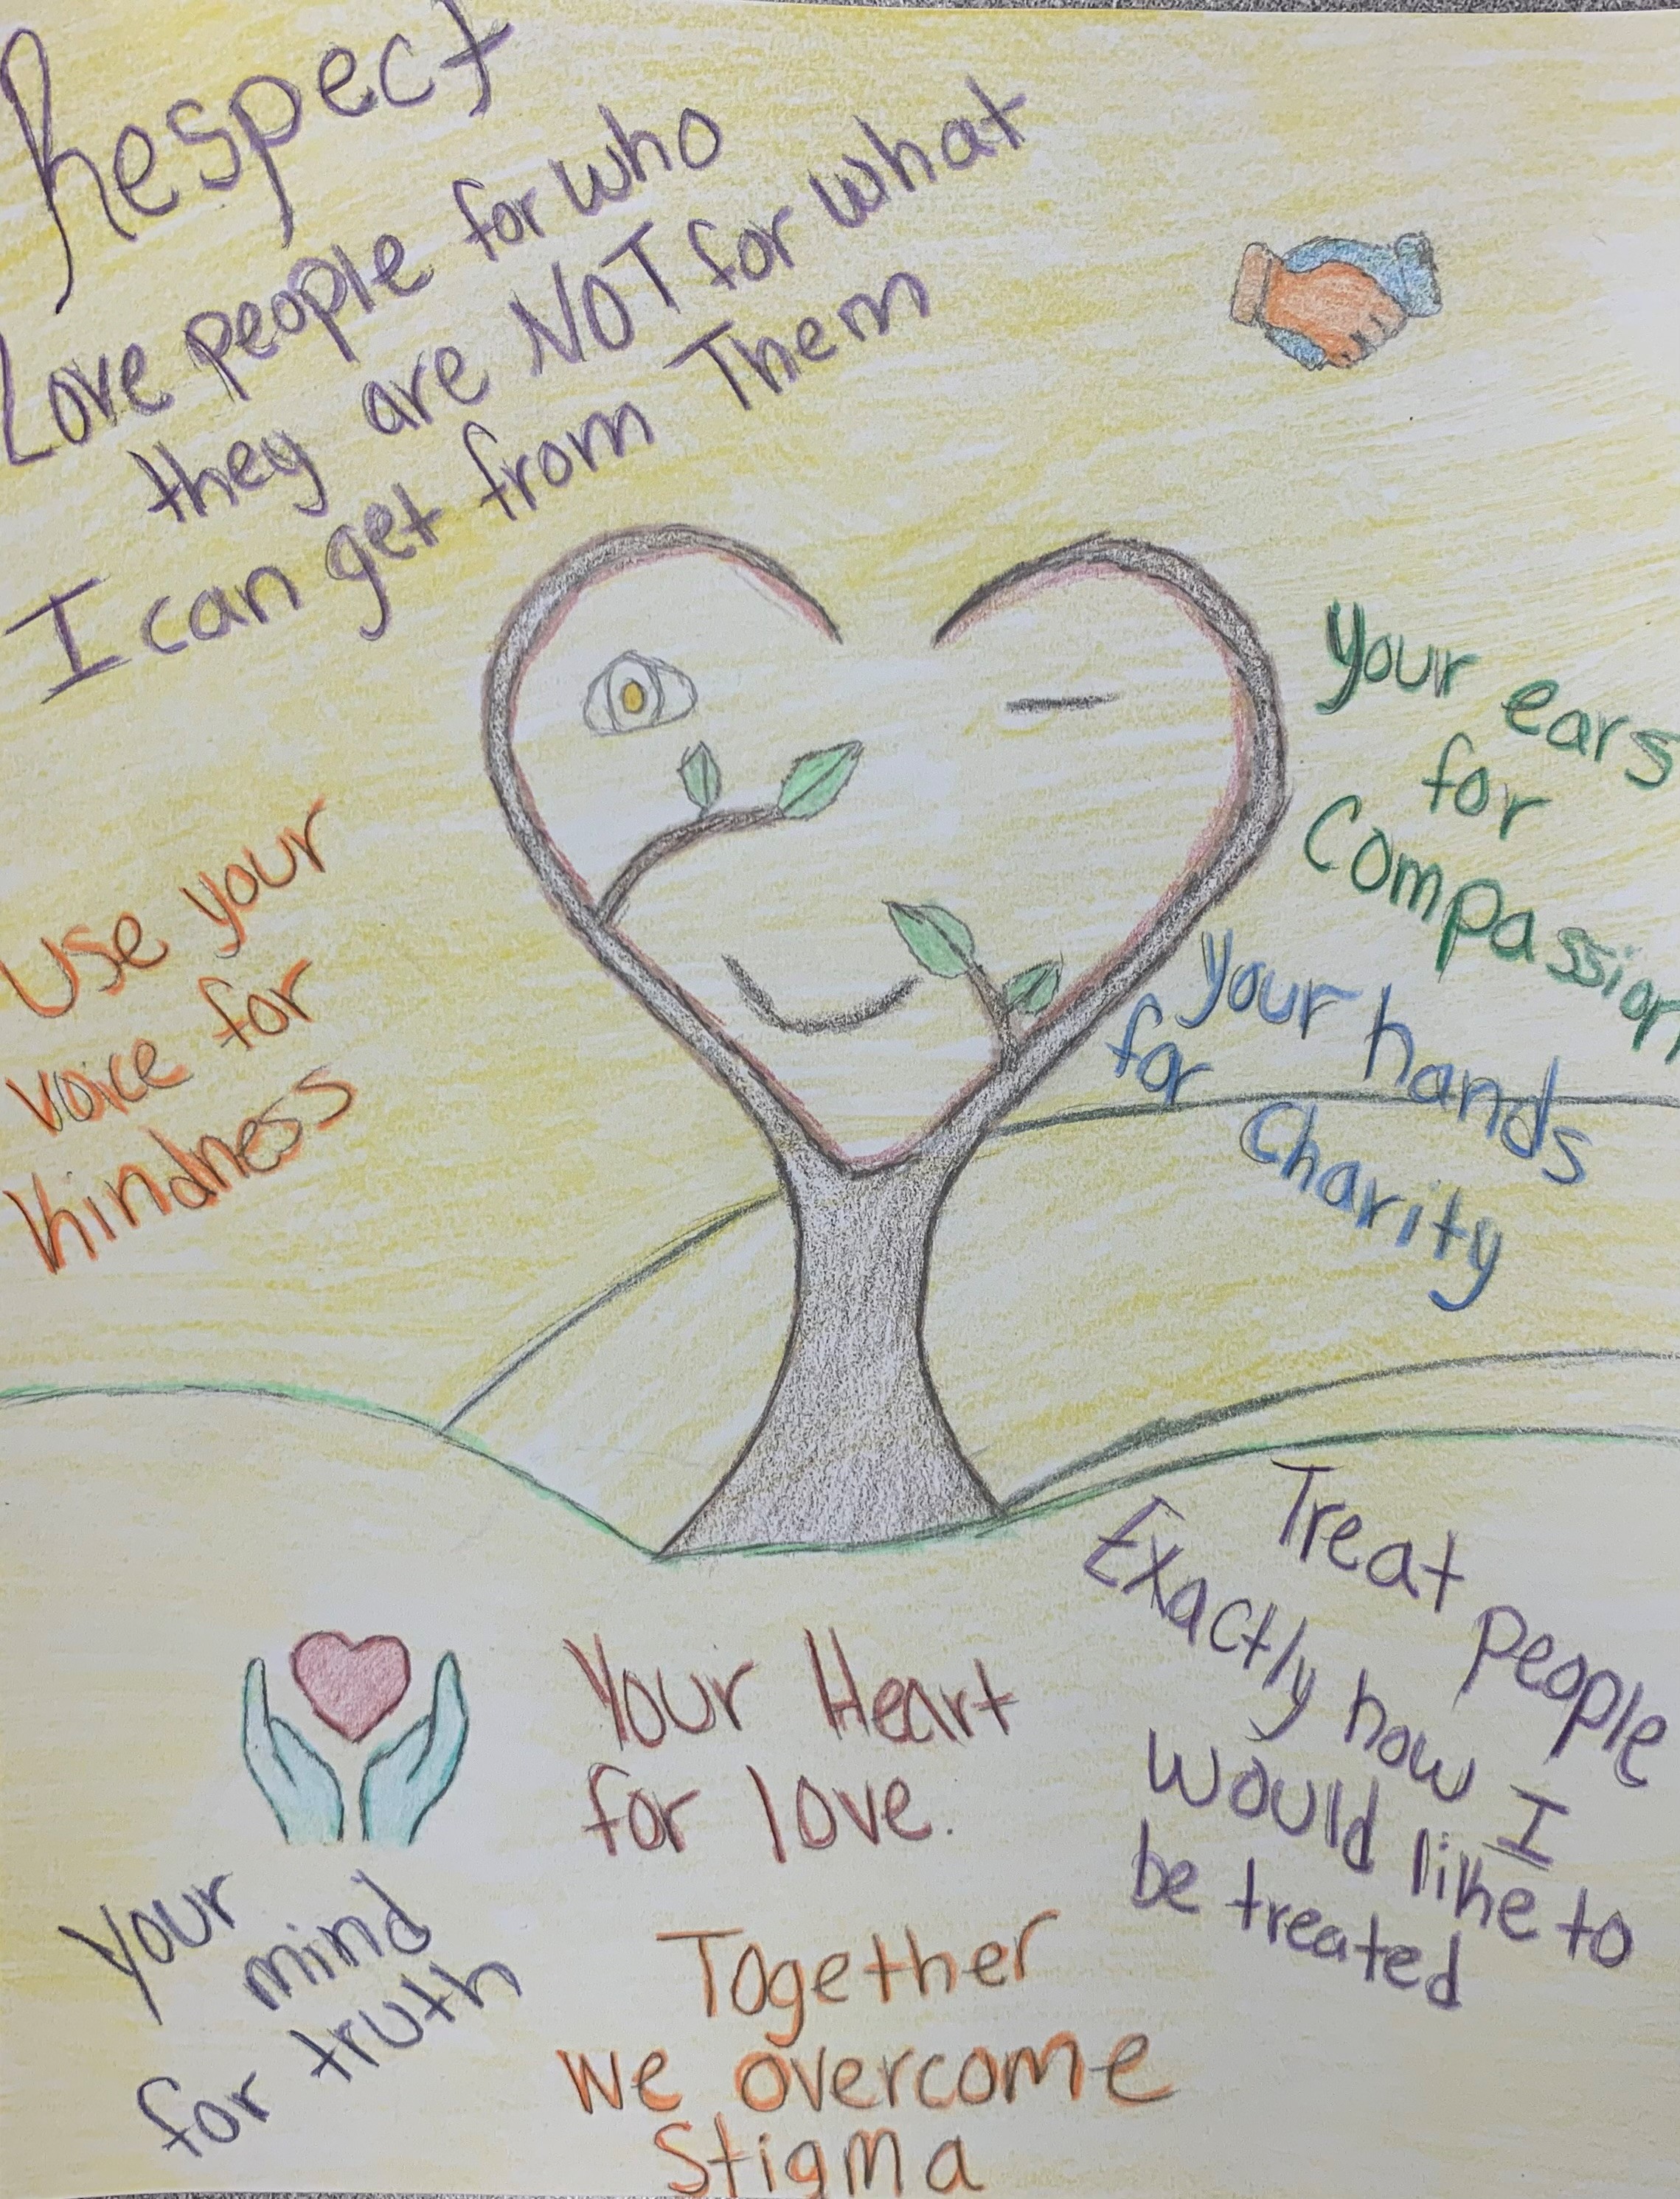 Respect
Love people for who
they are NOT for what
I can get from Them
Use your
voice for
Kindness
Your ears
for
Compassion
Your hands
for
Charity
Your Heart
for love.
Your
mind
for truth
Treat people
Exactly how I
would like to
be treated
Together
we overcome
Stigma